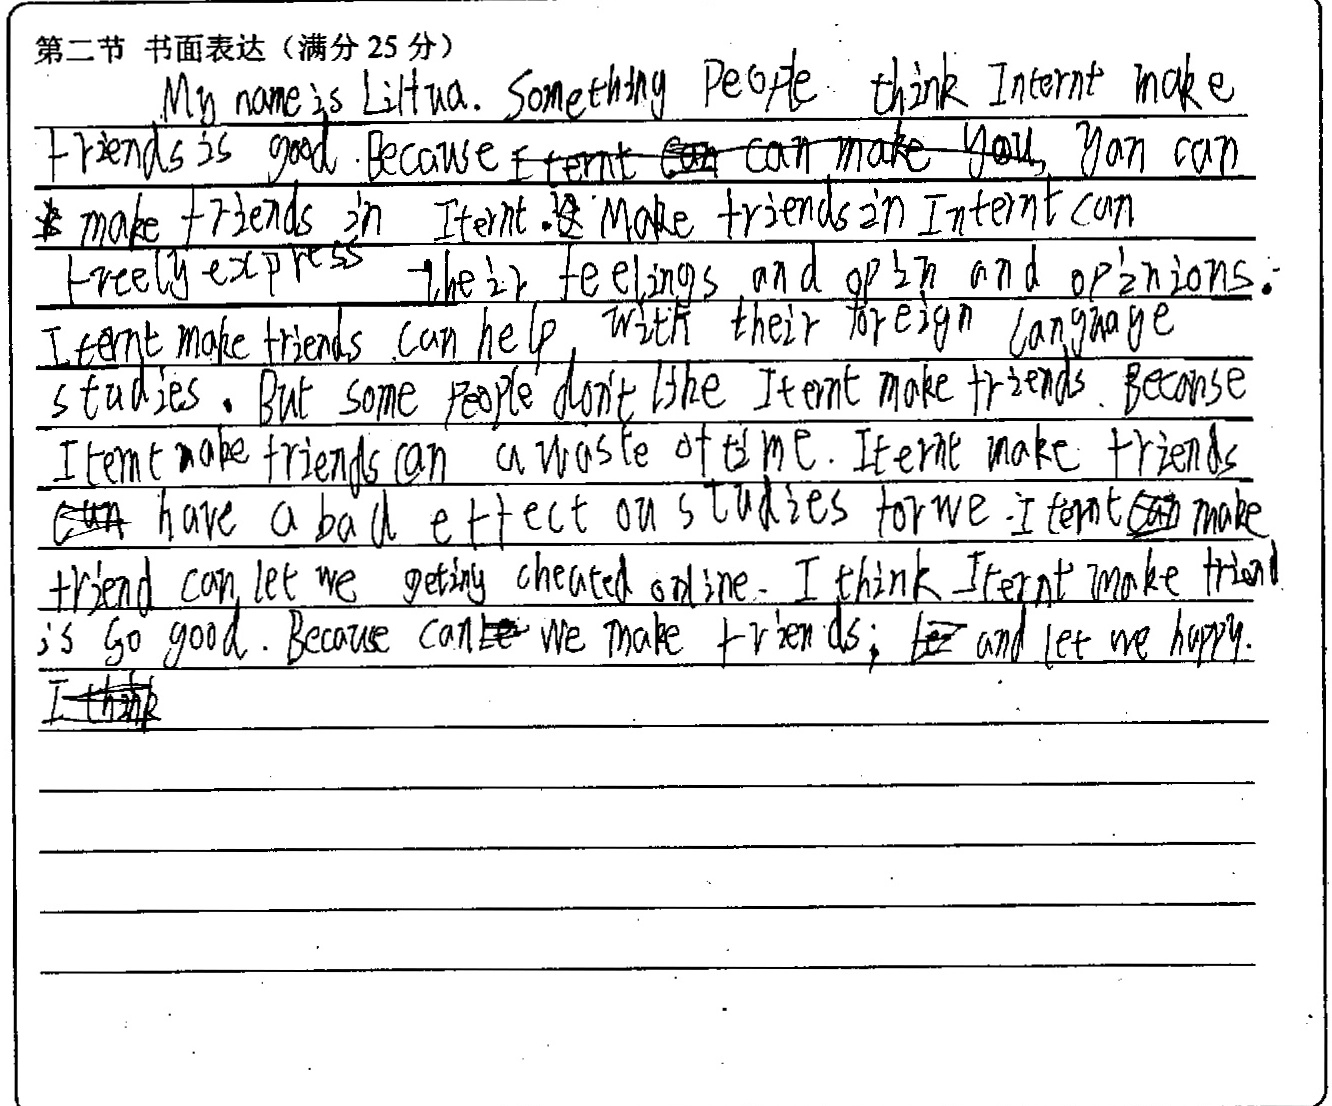 第二节 书面表达（满分 25 分）
My name is LiHua. Something People think Internt make
friends is good. Because Iternt can can make you, Yan can
make friends in Iternt. Make friends in Internt can
freely express their feelings and opin and opinions.
Iternt make friends can help with their foreign language
studies. But some People don't like Iternt make friends. Becanse
Iternt make friends can a waste of time. Iternt make friends
can have a bad effect on studies for we. Iternt can make
friend can let we geting cheated online. I think Iternt make friend
is so good. Because can we make friends; and let we happy.
I think